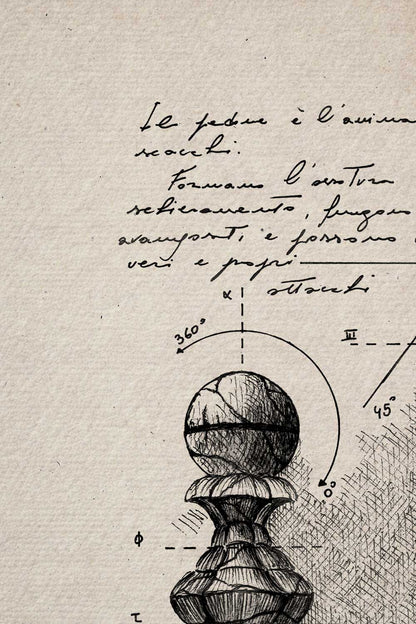 Il pedone è l'anima
scacchi.
Formano l'ossatura
schieramento, fungono
avamposti, e possono
veri e propri
attacchi
α
360°
III
45°
0°
ϕ
τ